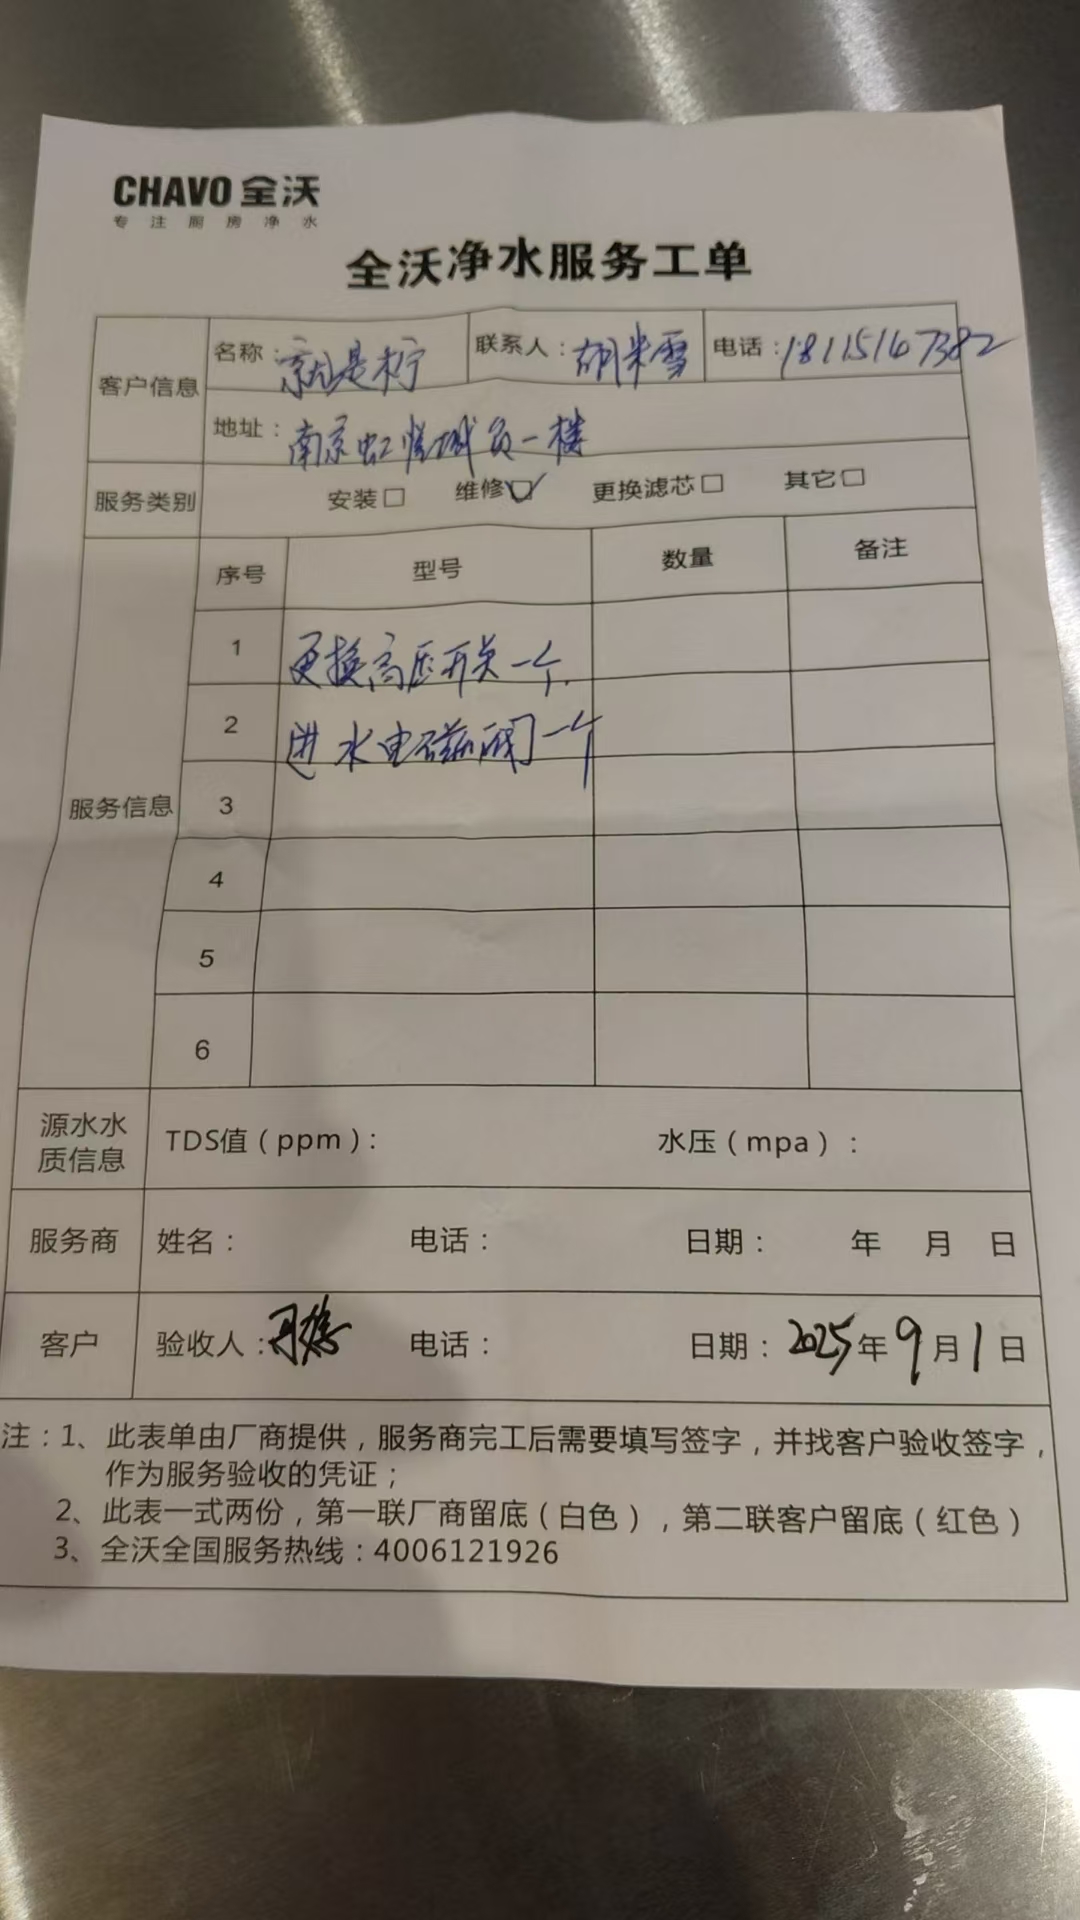 CHAVO 全沃
专注厨房净水
全沃净水服务工单
客户信息
名称：就是柠 联系人：胡米雪 电话：18115167382
地址：南京虹悦城负一楼
服务类别 安装□ 维修☑ 更换滤芯□ 其它□
服务信息
序号 型号 数量 备注
1 更换高压开关一个.
2 进水电磁阀一个
3
4
5
6
源水水质信息 TDS值（ppm）： 水压（mpa）：
服务商 姓名： 电话： 日期： 年 月 日
客户 验收人： 电话： 日期：2025年9月1日
注：1、此表单由厂商提供，服务商完工后需要填写签字，并找客户验收签字，
作为服务验收的凭证；
2、此表一式两份，第一联厂商留底（白色），第二联客户留底（红色）
3、全沃全国服务热线：4006121926